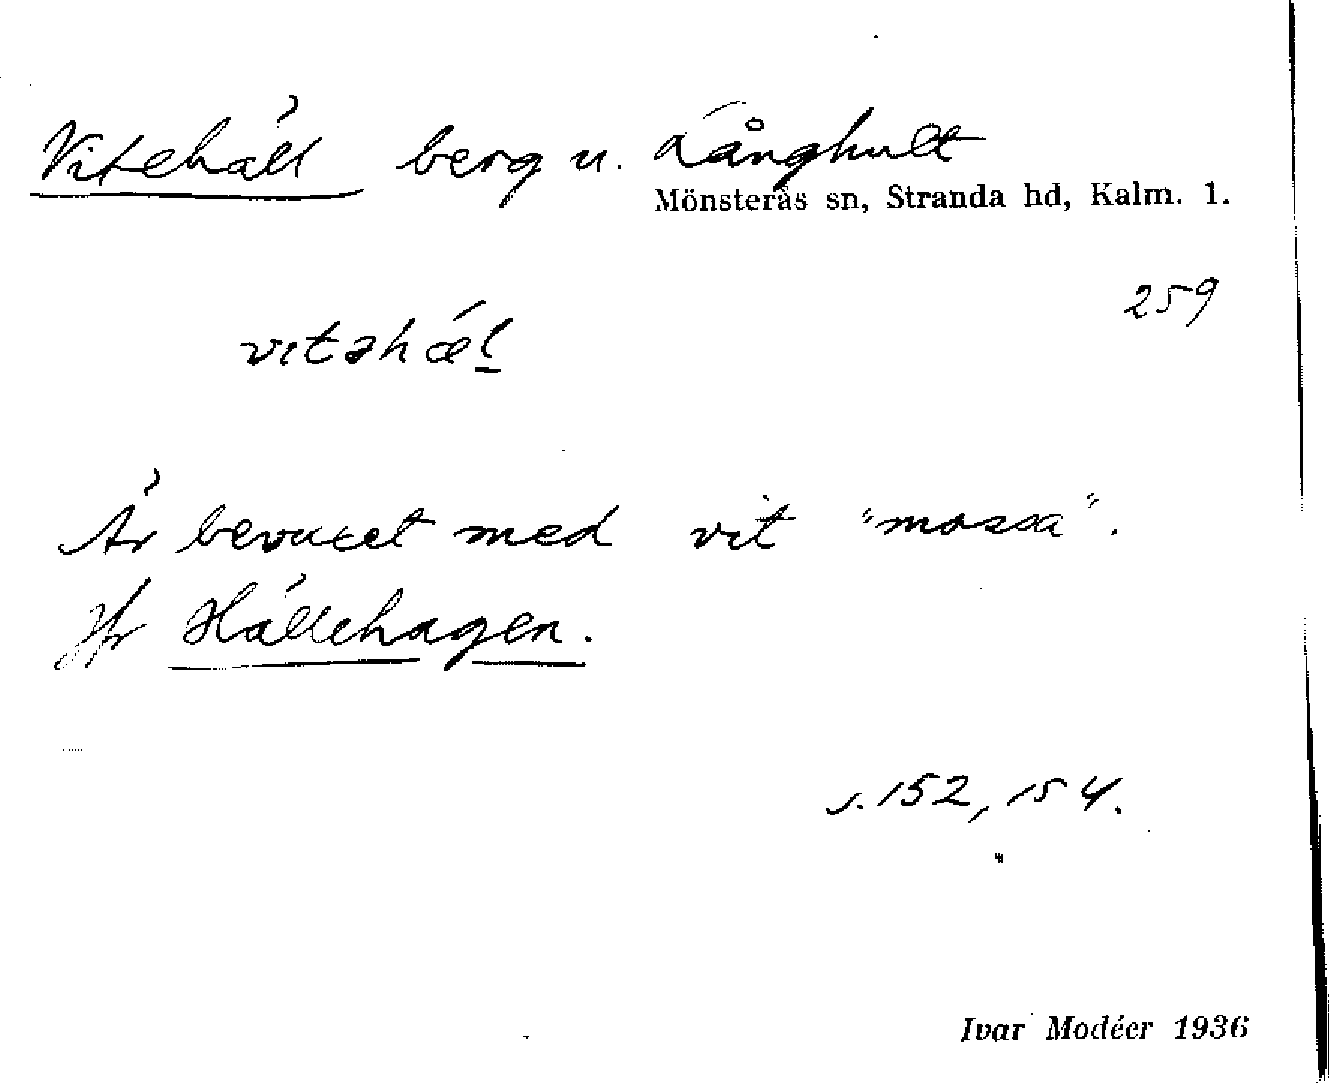 Vitehäll berg u. Långhult
Mönsterås sn, Stranda hd, Kalm. l.
259
vıtəhǽl
Är bevuxet med vit "mossa".
Jfr Hällehagen.
s. 152, 154.
Ivar Modéer 1936